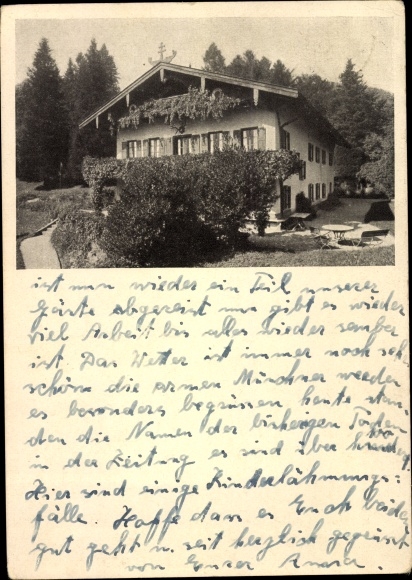 ist nun wieder ein Teil unserer
Gäste abgereist nun gibt es wieder
viel Arbeit bis alles wieder sauber
ist. Das Wetter ist immer noch sehr
schön die armen Münchner werden
es besonders begrüssen heute stan-
den die Namen der bisherigen Toten
in der Zeitung es sind über hundert
Hier sind einige Kinderlähmungs:
fälle. Hoffe dass es Euch beiden
gut geht u. seit herzlich gegrüsst
von Eurer